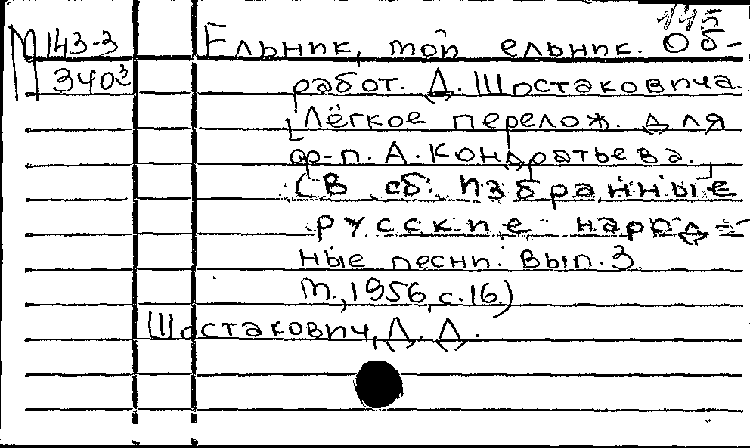 115
М 143-3 Ельник, мой ельник. Об-
340³ работ. Д. Шостаковича.
Лёгкое перелож. для
ф-п. А. Кондратьева.
(В сб. Избранные
русские народ-
ные песни. Вып. 3.
М., 1956, с. 16)
Шостакович, Д. Д.